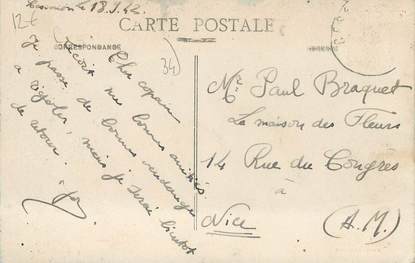 le 18.9.42
12€
CARTE POSTALE
CORRESPONDANCE
ADRESSE
34)
Cher copain
Reçois mes bonnes amitiés
Je passe de bonnes vendanges
à rigoler, mais je serai bientôt
de retour.
Mr Paul Braquet
La maison des Fleurs
14 Rue du Congres
à
Nice (A.M.)